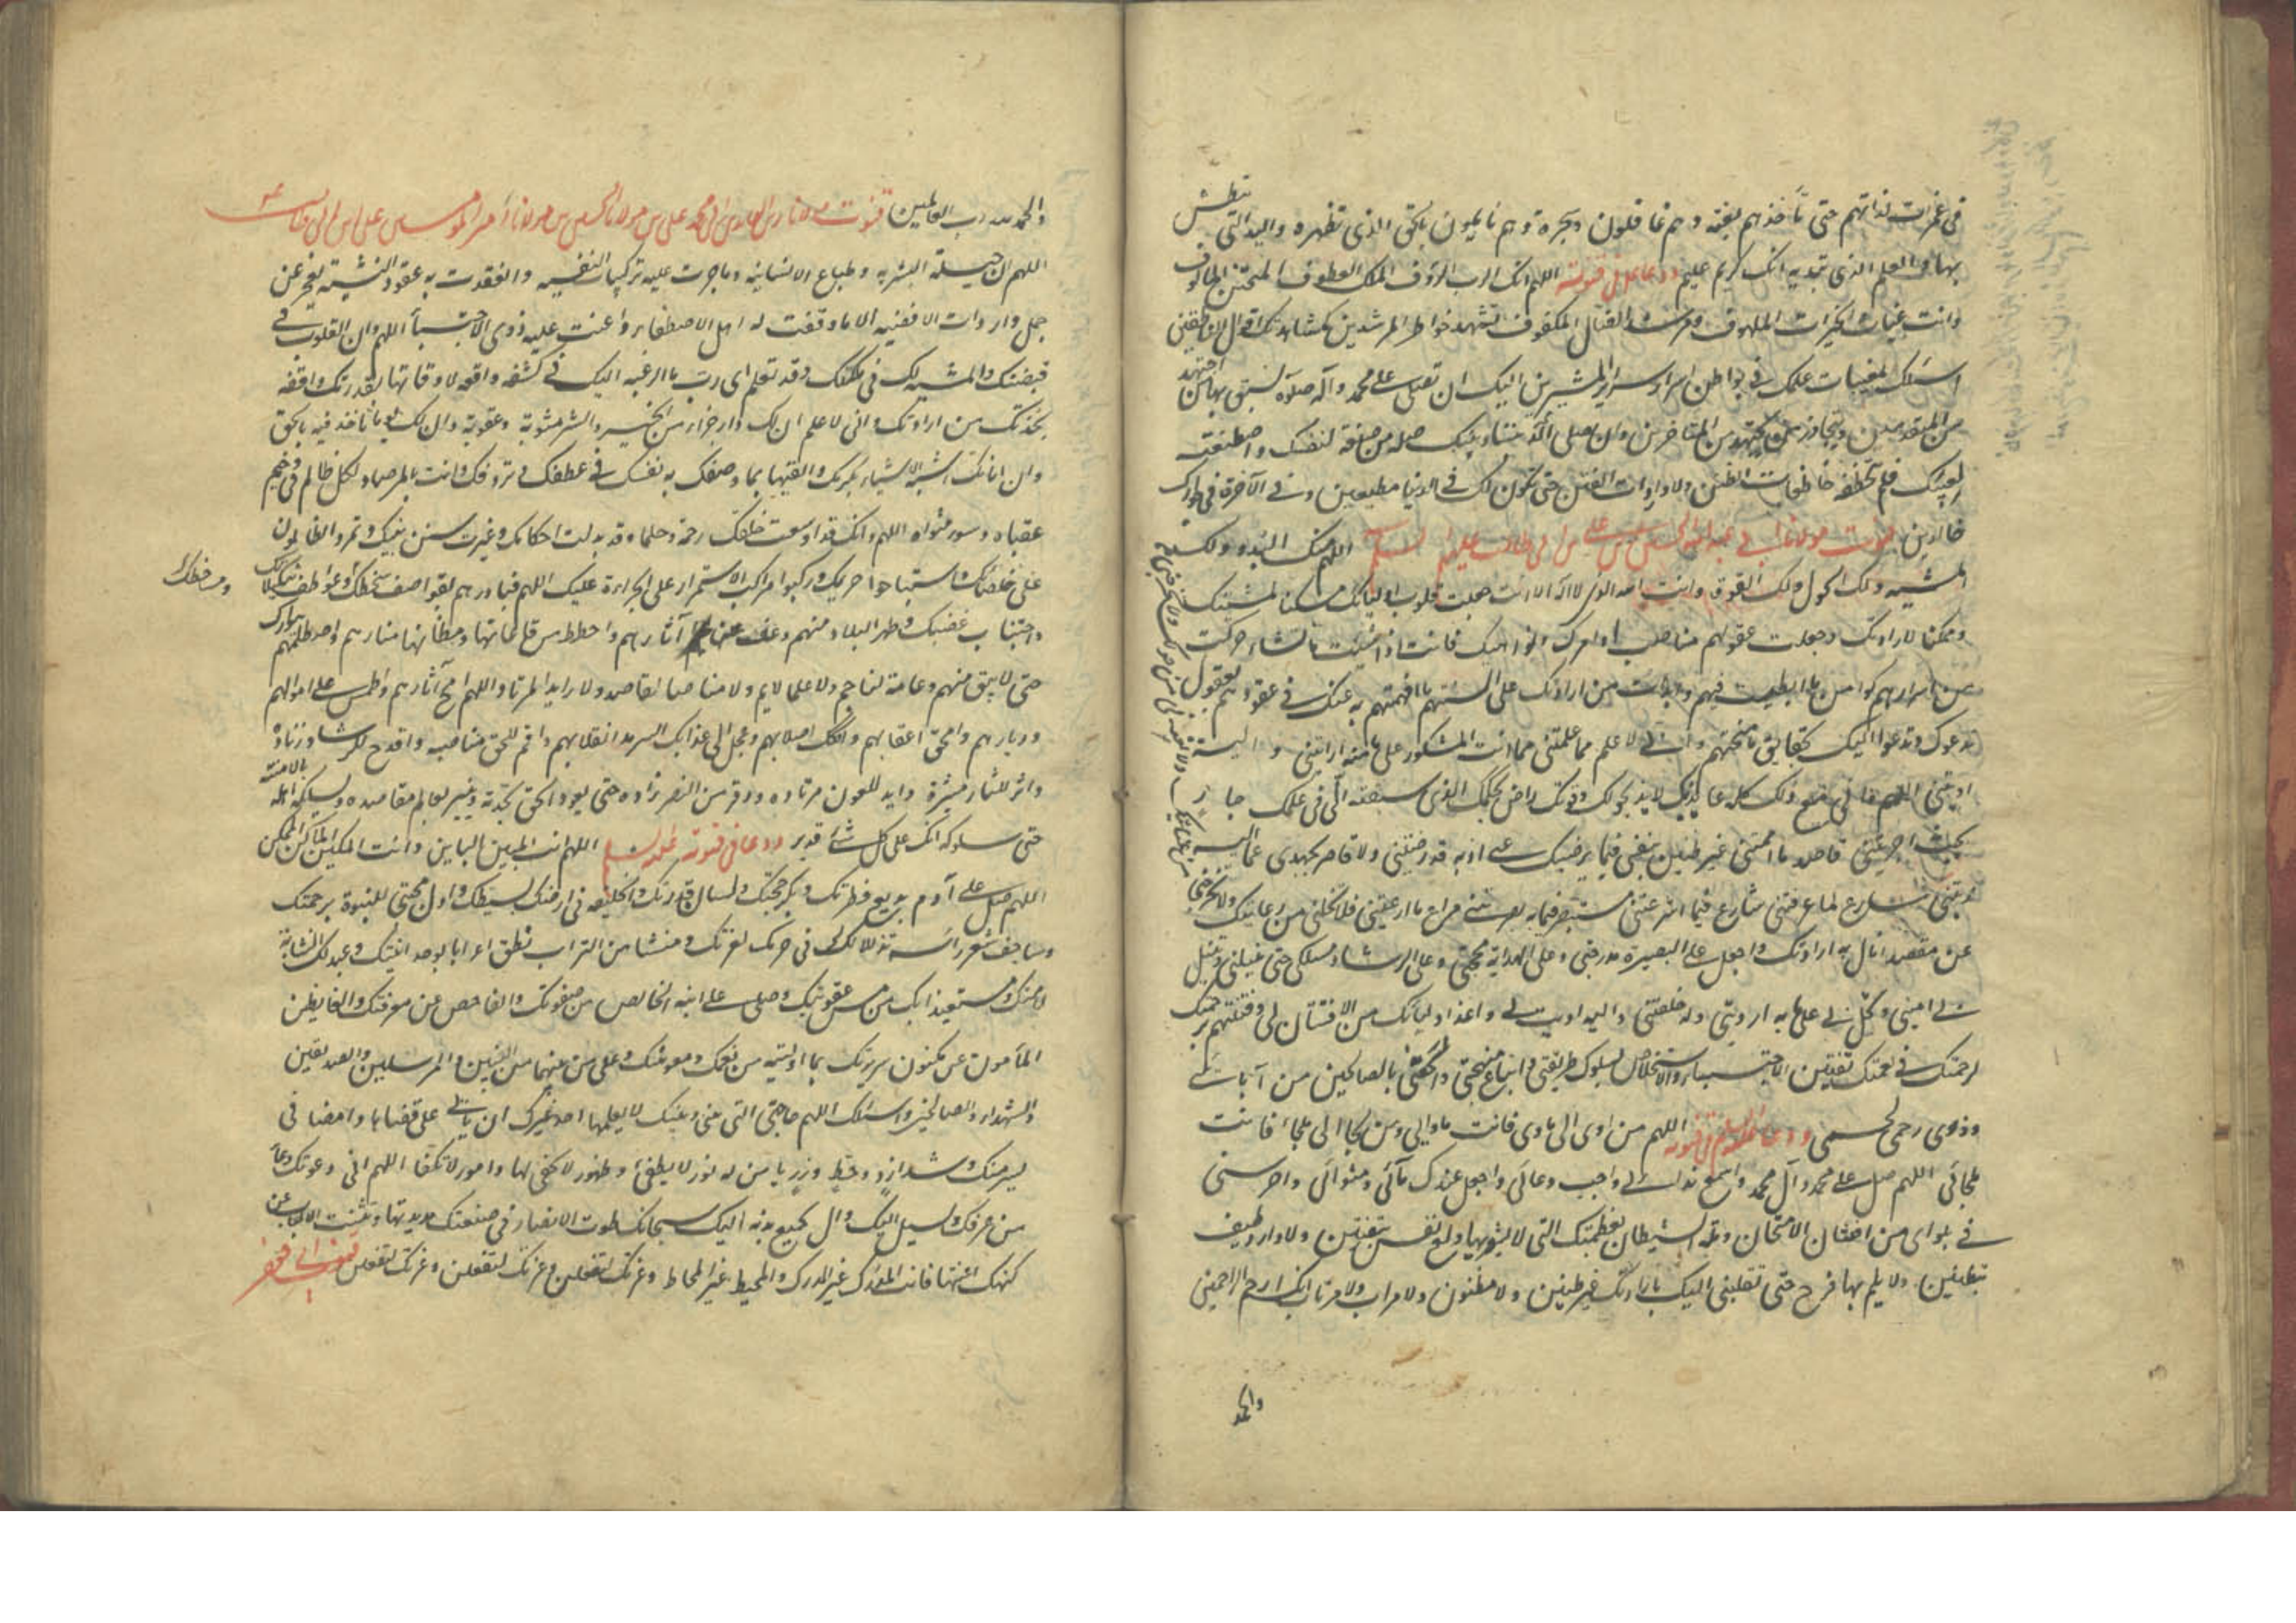 في غمرات لذاتهم حتى تأخذهم بغتة وهم غافلون وجهرة وهم نايمون بالحق الذي تظهره واليد التي تبطش
بها والعلم الذي تبديه انك كريم عليم ودعا في قنوته اللهم انك الرب الرؤف الملك العطوف المتحنن المألوف
وانت غياث الحيران الملهوف ومرشد الضال المكفوف تشهد خواطر المسرين كمشاهدتك اقوال الناطقين
اسئلك بمغيبات علمك في بواطن اسرار سراير المسرين اليك ان تصلي على محمد وآله صلوة نسبق بها من اجتهد
من المتقدمين ونتجاوز من يجتهد من المتأخرين وان تصل بيننا وبينك صلة من صنعته لنفسك واصطنعته
لعينك فلم تتخطفه خاطفات الظنن ولا واردات الفتن حتى نكون لك في الدنيا مطيعين وفي الآخرة في جوارك
خالدين قنوت مولانا ابي عبد الله الحسين بن علي بن ابي طالب عليهم السلم اللهم منك البدء ولك
المشية ولك الحول ولك القوة وانت الله الذي لا اله الا انت جعلت قلوب اوليائك مسكنا لمشيتك
وممكنا لارادتك وجعلت عقولهم مناصب اوامرك ونواهيك فانت اذا شئت ما تشاء حركت
من اسرارهم كوامن ما ابطنت فيهم وابدأت من ارادتك على السنتهم ما افهمتهم به عنك في عقودهم بعقول
تدعوك وتدعوا اليك بحقايق ما منحتهم واني لاعلم مما علمتني مما انت المشكور على ما منه اريتني واليه
آويتني اللهم واني مع ذلك كله عايذ بك لايذ بحولك وقوتك راض بحكمك الذي سقته الي في علمك جار
بحيث اجريتني قاصد ما اممتني غير ضنين بنفسي فيما يرضيك عني اذ به قد رضيتني ولا قاصر بجهدي عما اليه
ندبتني مسارع لما عرفتني شارع فيما اشرعتني مستبصر فيما بصرتني مراع ما ارعيتني فلا تخلني من رعايتك ولا تخرجني
من عنايتك ولا تقعدني عن حولك ولا تخرجني
عن مقصد انال به ارادتك واجعل على البصيرة مدرجتي وعلى الهداية محجتي وعلى الرشاد مسلكي حتى تنيلني وتنيل
بي امنيتي وتحل بي على ما به اردتني وله خلقتني واليه آويت بي واعذ اوليائك من الافتتان بي وفتنهم برحمتك
لرحمتك في نعمتك تفتين الاجتباء والاستخلاص بسلوك طريقتي واتباع منهجي والحقني بالصالحين من آبائي
وذوي رحمي ودعا عليه السلم في قنوته اللهم من اوى الى مأوى فانت مأواي ومن لجأ الى ملجأ فانت
ملجائي اللهم صل على محمد وآل محمد واسمع ندائي واجب دعائي واجعل عندك مآبي ومثواي واحرسني
في بلواي من افتنان الامتحان ولمة الشيطان بعظمتك التي لا يشوبها ولع نفس بتفتين ولا وارد طيف
بتظنين ولا يلم بها فرح حتى تقلبني اليك بارادتك غير ظنين ولا مظنون ولا مراب ولا مرتاب انك ارحم الراحمين
والحمد
والحمد لله رب العالمين قنوت مولانا زين العابدين ابي محمد علي بن مولانا الحسين بن مولانا امير المؤمنين علي بن ابي طالب
اللهم ان جبلة البشرية وطباع الانسانية وما جرت عليه تركيبات النفسية وانعقدت به عقود النشية تعجز عن
حمل واردات الاقضية الا ما وفقت له اهل الاصطفاء واعنت عليه ذوي الاجتباء اللهم وان القلوب في
قبضتك والمشية لك في ملكتك وقد تعلم اي رب ما الرغبة اليك في كشفه واقعة لاوقاتها بقدرتك واقفة
بحدك من ارادتك واني لاعلم ان لك دار جزاء من الخير والشر مثوبة وعقوبة وان لك يوما تأخذ فيه بالحق
وان اناتك اشبه الاشياء بكرمك واليقها بما وصفت به نفسك في عطفك وترؤفك وانت بالمرصاد لكل ظالم في وخيم
عقباه وسوء مثواه اللهم وانك قد اوسعت خلقك رحمة وحلما وقد بدلت احكامك وغيرت سنن نبيك وتمرد الظالمون
على خلصائك واستباحوا حريمك وركبوا مراكب الاستمرار على الجرأة عليك اللهم فبادرهم بقواصف سخطك وعواصف تنكيلاتك
ومساخطك
واجتثاث غضبك وطهر البلاد منهم وعف عنها آثارهم واحطط من قاعاتها ومظانها منارهم واصطلمهم ببوارك
حتى لا تبق منهم دعامة لناجم ولا علما لآم ولا مناصا لقاصد ولا رايدا لمرتاد اللهم امح آثارهم واطمس على اموالهم
وديارهم وامحق اعقابهم وافكك اصلابهم وعجل الى عذابك السرمد انقلابهم واقم للحق مناصبه واقدح للرشاد زناده
واثر للثار مثيره وايد بالعون مرتاده ووفر من النصر زاده حتى يعود الحق بجدته وينير معالم مقاصده ويسلكه اهله بالامنة
حق سلوكه انك على كل شئ قدير ودعا في قنوته عليه السلم اللهم انت المبين الباين وانت المكين الماكن الممكن
اللهم صل على آدم بديع فطرتك وبكر حجتك ولسان قدرتك والخليفة في ارضك بسيطك واول مجتبى للنبوة برحمتك
وساحف شعر رأسه تذللا لك في حرمك لعزتك ومنشأ من التراب نطق اعرابا بوحدانيتك وعبد لك انشأته
لامتك ومستعيذ بك من مس عقوبتك وصل على ابنه الخالص من صفوتك والفاحص عن معرفتك والغايص
المأمون عن مكنون سريرتك بما اوليته من نعمك ومعونتك وعلى من بينهما من النبيين والمرسلين والصديقين
والشهداء والصالحين واسئلك اللهم حاجتي التي بيني وبينك لا يعلمها احد غيرك ان تأتي على قضائها وامضائها في
يسر منك وشد ازر وحط وزر يا من له نور لا يطفى وظهور لا يخفى وامور لا تكفى اللهم اني دعوتك دعاء
من عرفك وتسبل اليك وآل بجميع بدنه اليك سبحانك طوت الابصار في صنعتك مديدتها وثنت الالباب عن
كنهك اعنتها فانت المدرك غير المدرك والمحيط غير المحاط وعزتك لتفعلن وعزتك لتفعلن وعزتك لتفعلن قنوت ابي جعفر